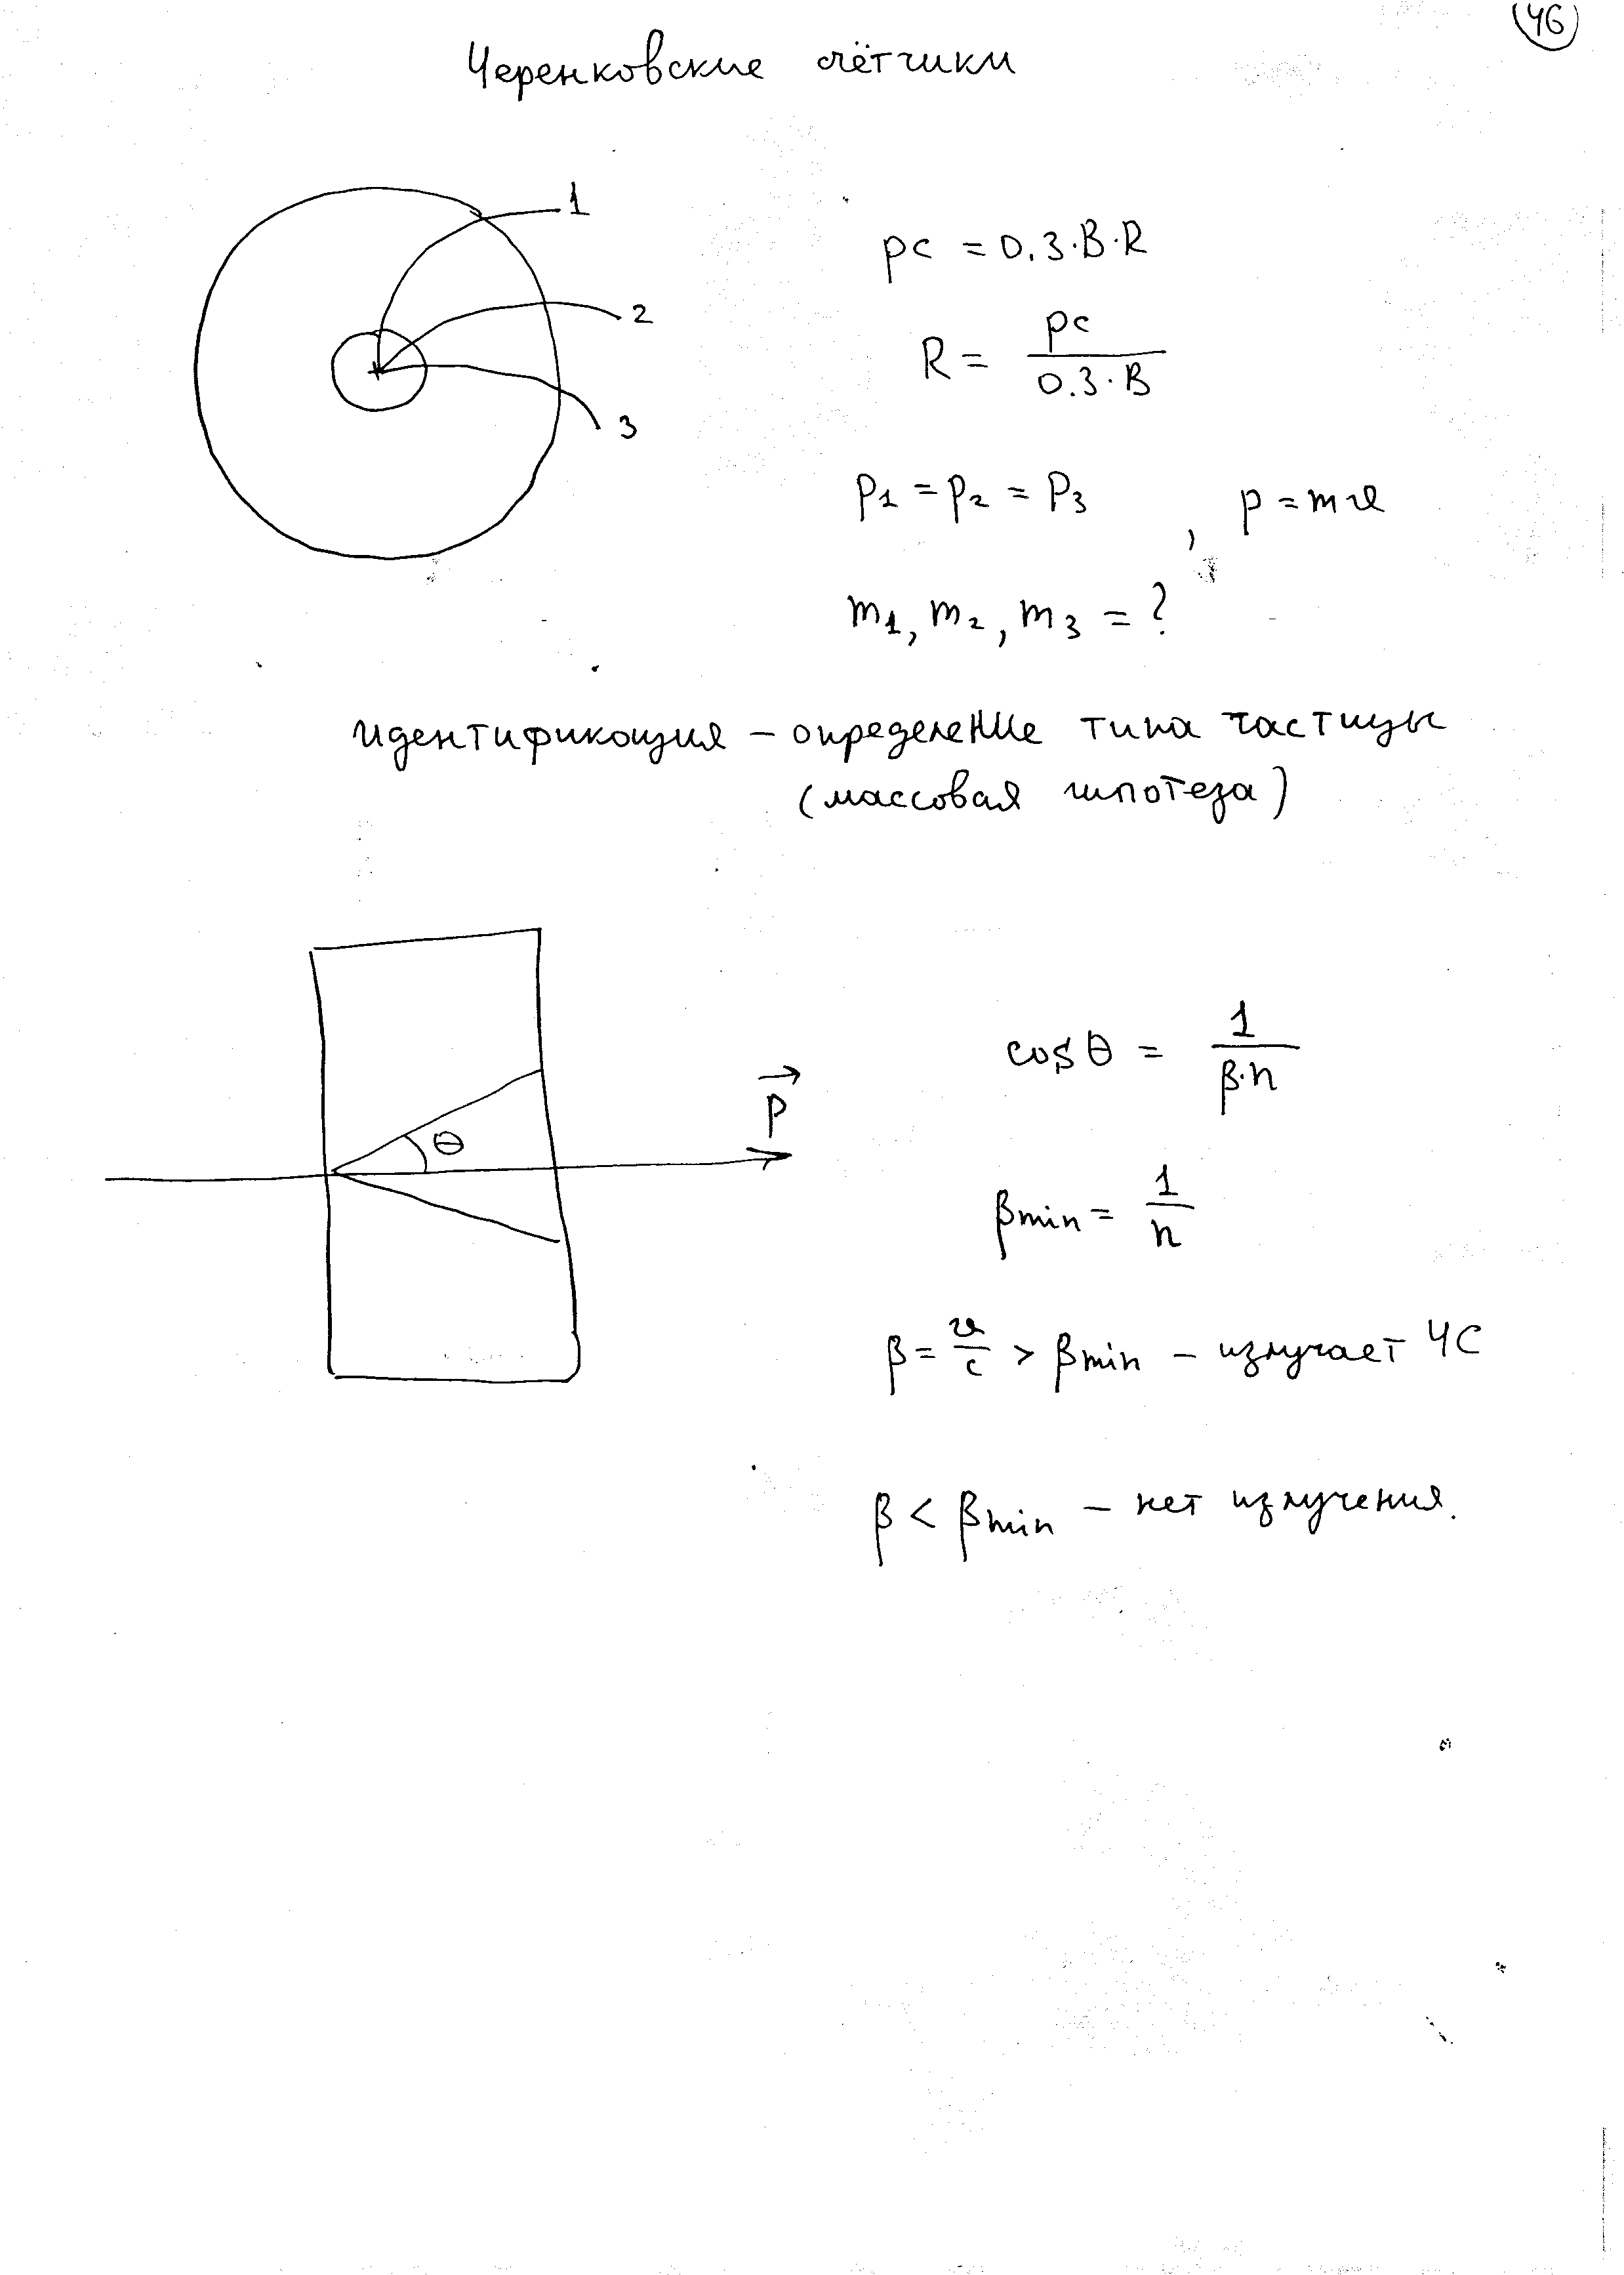 46
Черенковские счётчики
1
2
3
pc = 0.3·B·R
R = pc / 0.3·B
p1 = p2 = p3 , p = mv
m1, m2, m3 = ?
идентификация – определение типа частицы
(массовая гипотеза)
θ
p⃗
cos θ = 1 / β·n
βmin = 1 / n
β = v/c > βmin – излучает ЧС
β < βmin – нет излучения.